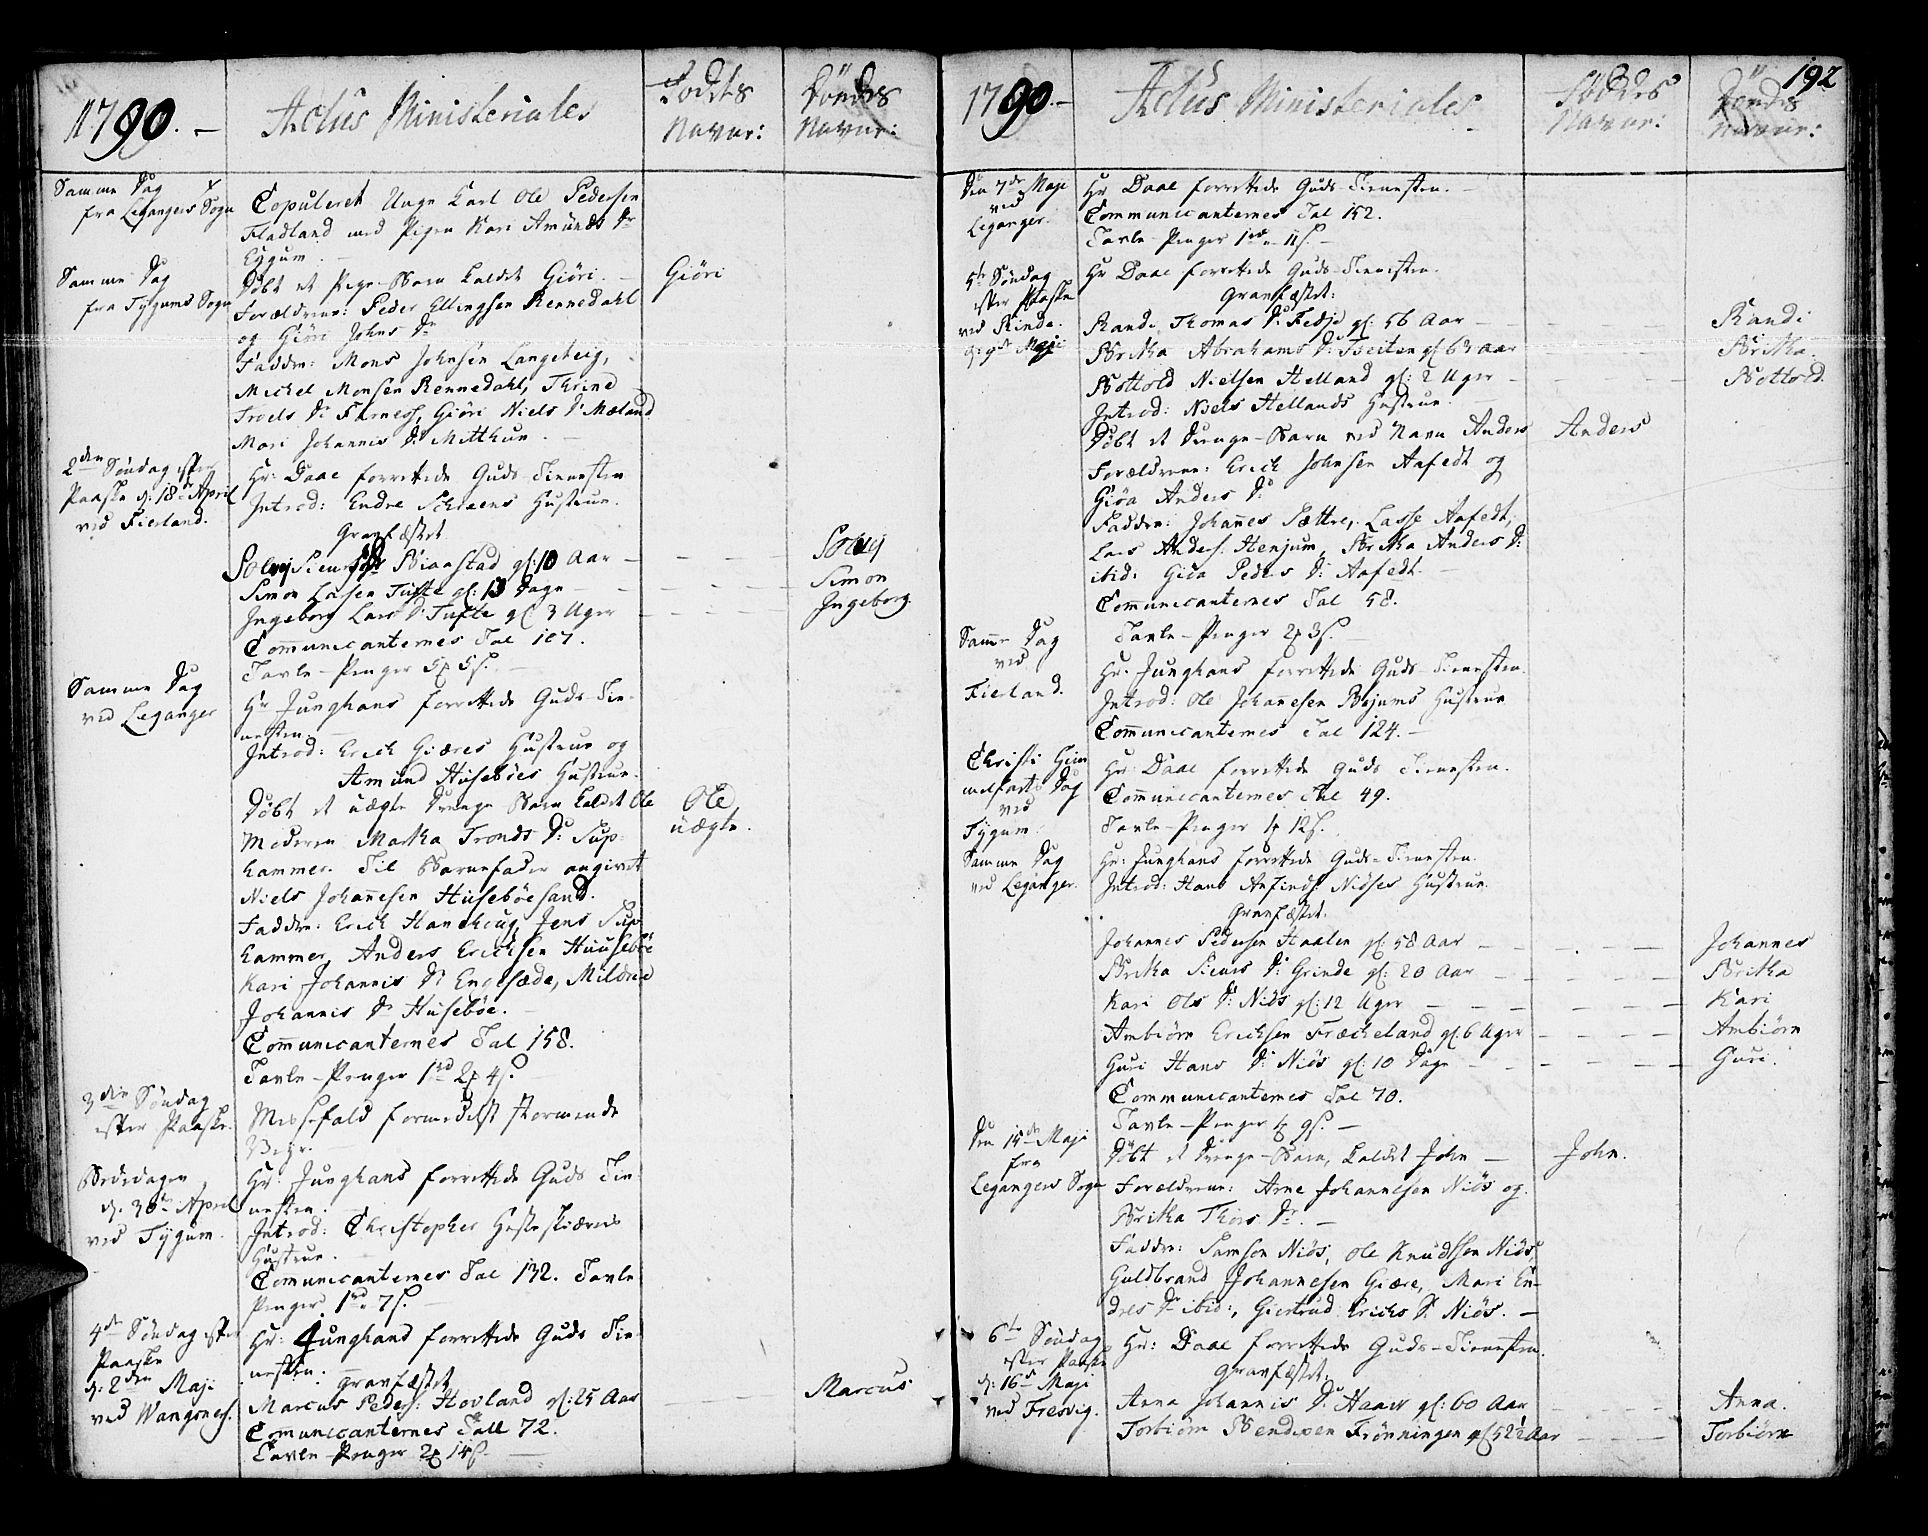 1790. —
Actus Ministeriales
Födtes
Navne:
Döpdes
Navne:
Samme Dag
fra Legangers Sogn
Copuleret Unge Karl Ole Pedersen
Fladland med Pigen Kari Amunds Dr
Eygum.
Samme Dag
fra Tygums Sogn
Döbt et Pige-Barn kaldet Giöri. —
Giöri
Forældrene: Peder Ellingsen Rennedahl
og Giöri Johns Dr
Faddre: Mons Johnsen Langeteig,
Michel Monsen Rennedahl, Thrine
Troels Dr Farness, Giöri Niels Dr Mæland
Mari Johannis Dr Mitthun. —
2den Söndag efter
Paaske d: 18de April
ved Fierland.
Hr: Daae forrettede Guds-Tienesten
Introd: Endre Schreens Hustrue.
Græsfæstet
Solvj Sieurs Dr Biaastad gl: 10 Aar —
Solvj
Simon Larsen Tufte gl: 13 Dage
Simon
Ingeborg Lars Dr Tufte gl 3 Uger
Ingeborg
Communicanternes Tal 107.
Tavle-Penger 5 ʒ 5 s.
Samme Dag
ved Leganger
Hr Junghans forrettede Guds-Tie-
nesten.
Introd: Erich Giæres Hustrue og
Amund Huseböes Hustrue.
Döbt et uægte Drenge Barn kaldet Ole
Ole
uægte.
Moderen Martha Tronds Dr Sup-
hammer. Til Barnefader angivet
Niels Johannesen Huseböesand.
Faddre: Erich Hanehoug, Jens Sup-
hammer, Anders Erichsen Huusebö
Kari Johannis Dr Engesæde, Mildrid
Johannis Dr Huseböe. —
Communicanternes Tal 158.
Tavle-Penger 1rd 2 ʒ 4 s.
3die Söndag
efter Paaske.
Messefald formedelst stormende
Vejr.
Bededagen
d. 30te April
ved Tygum.
Hr: Junghans forrettede Guds Tie-
nesten.
Introd: Christopher Hesteskiærs
Hustrue.
Communicanternes Tal 132. Tavle
Penger 1rd 7 s.
4de Söndag efter
Paaske
d: 2den Maji
ved Wangsness.
Hr: Junghans forrettede Guds Tie-
nesten.
Græsfæstet
Marcus Peders: Hovland gl: 25 Aar
Marcus
Communicanternes Tall 72.
Tavle-Penger 2 ʒ 14 s.
192
1790. —
Actus Ministeriales
Födtes
Navne:
Dödes
Navne:
Den 7de Maji
ved
Leganger.
Hr Daae forrettede Guds-Tienesten. —
Communicanternes Tal 152.
Tavle-Penger 1rd 11 s. —
5te Söndag
efter Paaske
ved Rinde.
d: 9de Maji
Hr Daae forrettede Guds-Tienesten.
Græsfæstet:
Randi Thomas Dr Fedje gl: 56 Aar —
Randi
Britha Abrahams Dr Tveiten gl 63 Aar
Britha.
Bottold Nielsen Helland gl: 2 Uger —
Bottold.
Introd: Niels Hellands Hustrue.
Döbt et Drenge-Barn ved Navn Anders
Anders
Forældrene: Erich Johnsen Aafedt og
Giöa Anders Dr
Faddre: Johannes Sættre, Lasse Aafedt,
Lars Anders. Henjum, Britha Anders Dr
ibid: Giöa Peders Dr Aafedt. —
Communicanternes Tal 58.
Tavle-Penger 2 ʒ 3 s. —
Samme Dag
ved
Fierland.
Hr: Junghans forrettede Guds-Tienesten
Introd: Ole Johannesen Bojums Hustrue
Communicanternes Tal 124. —
Christi Him-
melfarts Dag
ved
Tygum.
Hr Daae forrettede Guds Tienesten.
Communicanternes Tal 49.
Tavle-Penger 1 ʒ 12 s.
Samme Dag
ved Leganger.
Hr: Junghans forrettede Guds-Tienesten.
Introd: Hans Anfinds: Niöses Hustrue.
Græsfæstet.
Johannes Pedersen Haalen gl: 58 Aar —
Johannes
Britha Sieurs Dr Grinde gl: 20 Aar
Britha
Kari Ols Dr Niös gl: 12 Uger
Kari
Ambiörn Erichsen Fræcheland gl: 6 Uger
Ambiörn
Guri Hans Dr Niös gl: 10 Dage
Guri.
Communicanternes Tal 70.
Tavle-Penger 4 ʒ 9 s. —
Den 15de Maji
fra
Legangers Sogn
Döbt et Drenge-Barn, kaldet John —
John.
Forældrene: Arne Johannesen Niös og
Britha Thors Dr. —
Faddre: Samson Niös, Ole Knudsson Niös,
Guldbrand Johannesen Giære, Mari En-
dres Dr ibid:, Giertrud Erichs Dr Niös. —
6te Söndag
efter Paaske
d: 16de Maji
ved Fresvig.
Hr: Daae forrettede Guds-Tienesten.
Græsfæstet.
Anna Johannis Dr Haave gl: 60 Aar
Anna.
Torbiörn Bendixen Frönningen gl 52½ Aar
Torbiörn